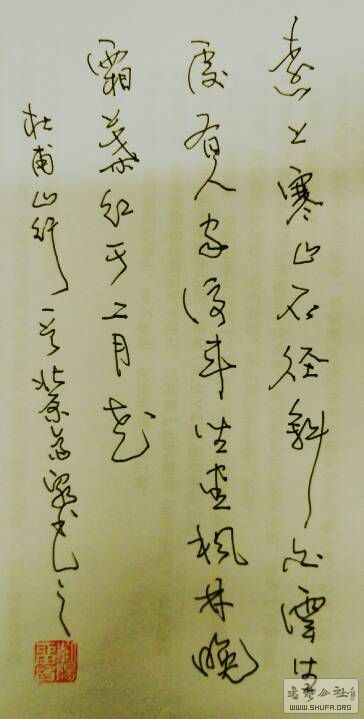 远上寒山石径斜白雲生
处有人家停车坐爱枫林晚
霜葉红于二月花
杜甫山行一首北京 书之
书法公社
WWW.SHUFA.ORG